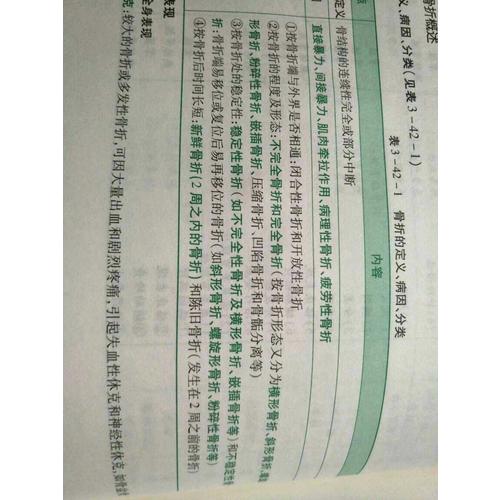 骨折概述
义、病因、分类(见表3-42-1)
表3-42-1 骨折的定义、病因、分类
内容
定义 骨结构的连续性完全或部分中断
直接暴力、间接暴力、肌肉牵拉作用、病理性骨折、疲劳性骨折
①按骨折端与外界是否相通:闭合性骨折和开放性骨折
②按骨折的程度及形态:不完全骨折和完全骨折(按骨折形态又分为横形骨折、斜形骨折、螺旋
形骨折、粉碎性骨折、嵌插骨折、压缩骨折、凹陷骨折和骨骺分离等)
③按骨折处的稳定性:稳定性骨折(如不完全性骨折及横形骨折、嵌插骨折等)和不稳定性骨
折:骨折端易移位或复位后易再移位的骨折(如斜形骨折、螺旋形骨折、粉碎性骨折等)
④按骨折后时间长短:新鲜骨折(2周之内的骨折)和陈旧骨折(发生在2周之前的骨折)
表现
全身表现
克:较大的骨折或多发性骨折,可因大量出血和剧烈疼痛,引起失血性休克和神经性休克,如骨盆